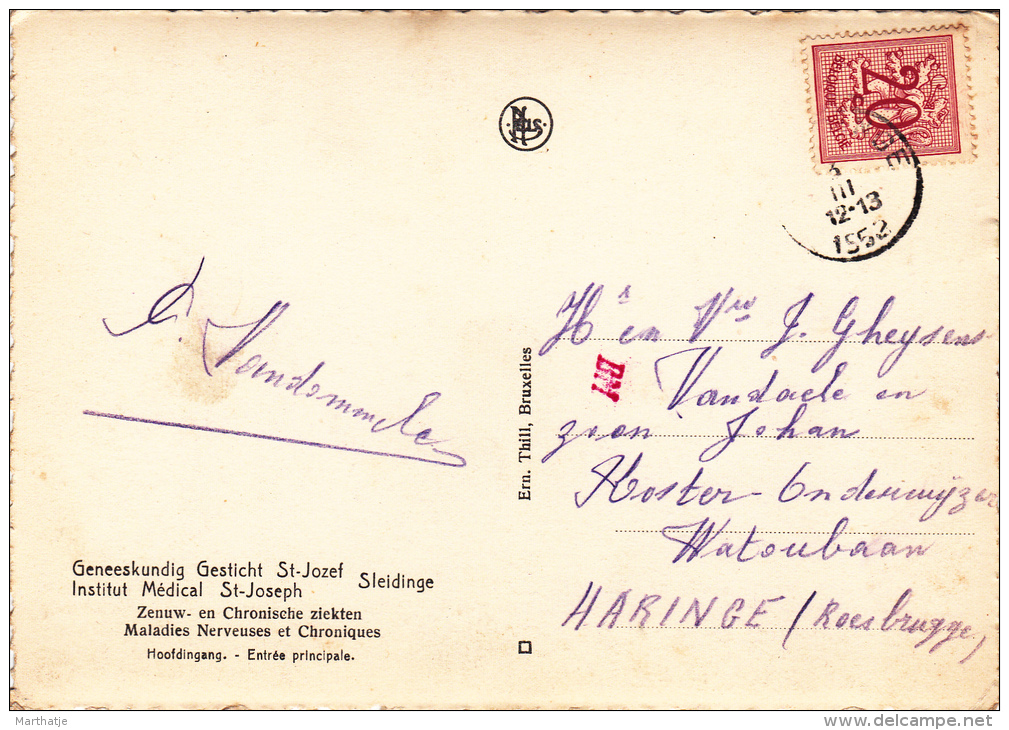 NELS
20
BELGIQUE BELGIË
III
12-13
1952
A. Vandommele
Ern. Thill, Bruxelles
Hr en Vrw J. Gheysens
Vandaele en
zoon Johan
Koster-Onderwijzer
Watoubaan
HARINGE (Roesbrugge)
Geneeskundig Gesticht St-Jozef
Institut Médical St-Joseph
Sleidinge
Zenuw- en Chronische ziekten
Maladies Nerveuses et Chroniques
Hoofdingang. - Entrée principale.
Marthatje
http://www.delcampe.net